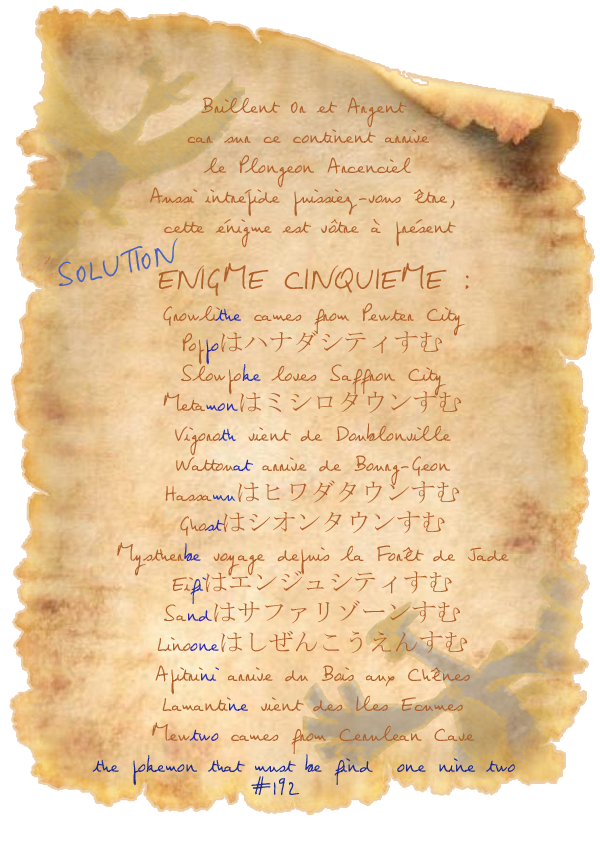 Brillent Or et Argent
car sur ce continent arrive
le Plongeon Arcenciel
Aussi intrépide puissiez-vous être,
cette énigme est vôtre à présent
SOLUTION
ENIGME CINQUIEME :
Growlithe cames from Pewter City
Poppoはハナダシティすむ
Slowpoke loves Saffron City
Metamonはミシロタウンすむ
Vigoroth vient de Doublonville
Wattouat arrive de Bourg-Geon
Hassamuはヒワダタウンすむ
Ghostはシオンタウンすむ
Mystherbe voyage depuis la Forêt de Jade
Eifiはエンジュシティすむ
Sandはサファリゾーンすむ
Linooneはしぜんこうえんすむ
Apitrini arrive du Bois aux Chênes
Lamantine vient des Iles Ecumes
Mewtwo cames from Cerulean Cave
the pokemon that must be find one nine two
#192